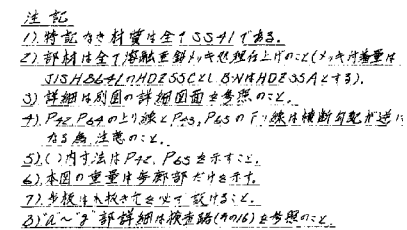 注記
1). 特記なき材質は全てSS41である。
2). 部材は全て溶融亜鉛メッキ処理仕上げのこと(メッキ付着量は
JISH8641のHDZ55とし B.NはHDZ35Aとする).
3). 詳細は別図の詳細図面を参照のこと。
4). P42, P64の上り線とP43, P65の下り線は横断勾配が逆に
なる為 注意のこと。
5). ( )内寸法はP42, P65を示すこと.
6). 本図の重量は毎 部だけを示す。
7). 水抜き穴を必ず設けること.
8). "a"~"g"部詳細は検査路(その16)を参照のこと.